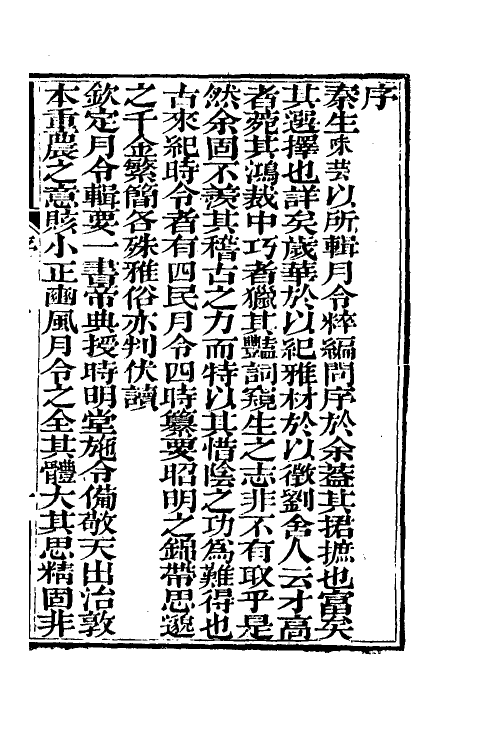 序
秦生味芸以所輯月令粹編問序於余蓋其捃摭也富矣
其選擇也詳矣歲華於以紀雅材於以徵劉舍人云才高
者菀其鴻裁中巧者獵其豔詞窺生之志非不有取乎是
然余固不羨其稽古之力而特以其惜陰之功為難得也
古來紀時令者有四民月令四時纂要昭明之錦帶思邈
之千金繁簡各殊雅俗亦判伏讀
欽定月令輯要一書帝典授時明堂施令備敬天出治敦
本重農之意賅小正豳風月令之全其體大其思精固非